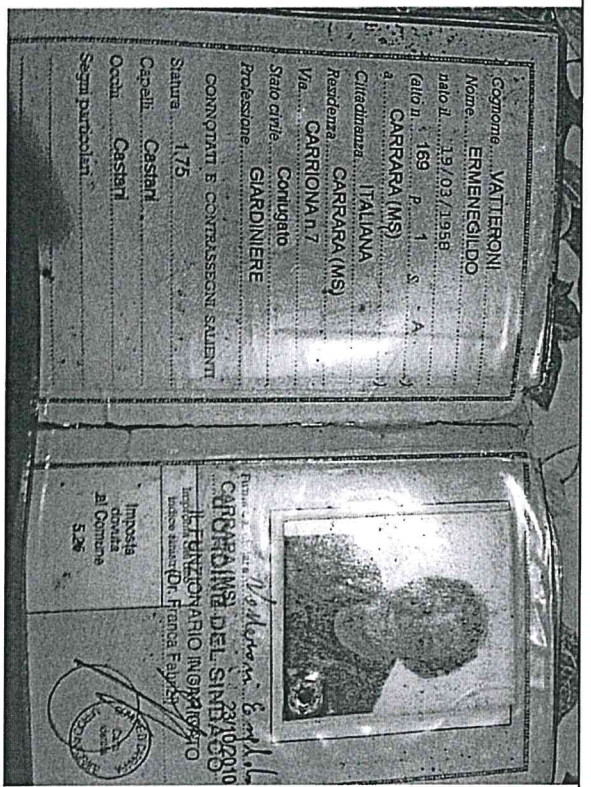 Cognome VATTERONI
Nome ERMENEGILDO
nato il 19/03/1958
(atto n. 169 P. 1 S. A )
a CARRARA (MS) )
Cittadinanza ITALIANA
Residenza CARRARA (MS)
Via CARRIONA n.7
Stato civile Coniugato
Professione GIARDINIERE
CONNOTATI E CONTRASSEGNI SALIENTI
Statura 1,75
Capelli Castani
Occhi Castani
Segni particolari
Vatteroni
CARRARA (MS) 23/10/2010
D'ORDINE DEL SINDACO
IL FUNZIONARIO INCARICATO
(Dr. Franca
Imposta
dovuta
al Comune
5,26